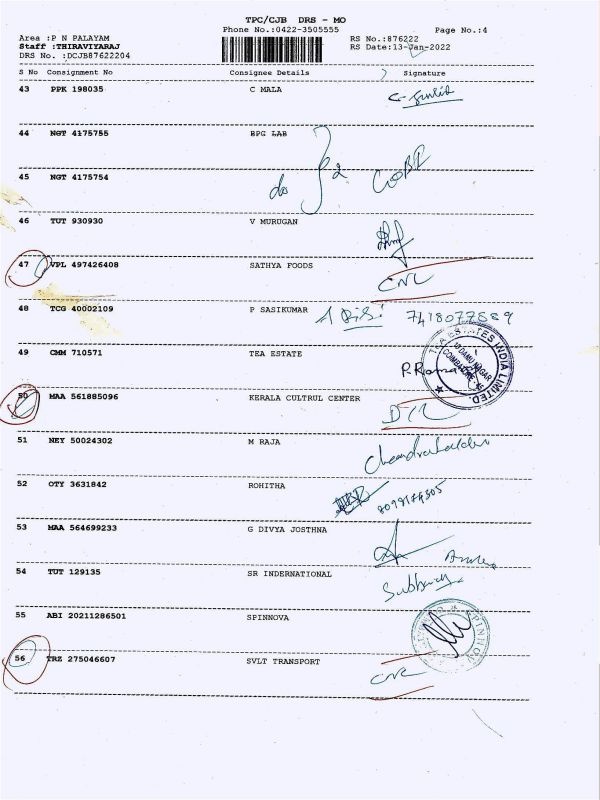 TPC/CJB DRS - MO
Phone No.:0422-3505555
Page No.:4
Area :P N PALAYAM
RS No.:876222
Staff :THIRAVIYARAJ
RS Date:13-Jan-2022
DRS No. :DCJB87622204
S No Consignment No Consignee Details Signature
43 PPK 198035 C MALA
44 NGT 4175755 BPG LAB
45 NGT 4175754 do
46 TUT 930930 V MURUGAN
47 VPL 497426408 SATHYA FOODS
CNL
48 TCG 40002109 P SASIKUMAR
49 CMM 710571 TEA ESTATE
TEA ESTATES INDIA LIMITED.
COIMBATORE
50 MAA 561885096 KERALA CULTRUL CENTER
51 NEY 50024302 M RAJA
52 OTY 3631842 ROHITHA
53 MAA 564699233 G DIVYA JOSTHNA
54 TUT 129135 SR INDERNATIONAL
55 ABI 20211286501 SPINNOVA
56 TRZ 275046607 SVLT TRANSPORT